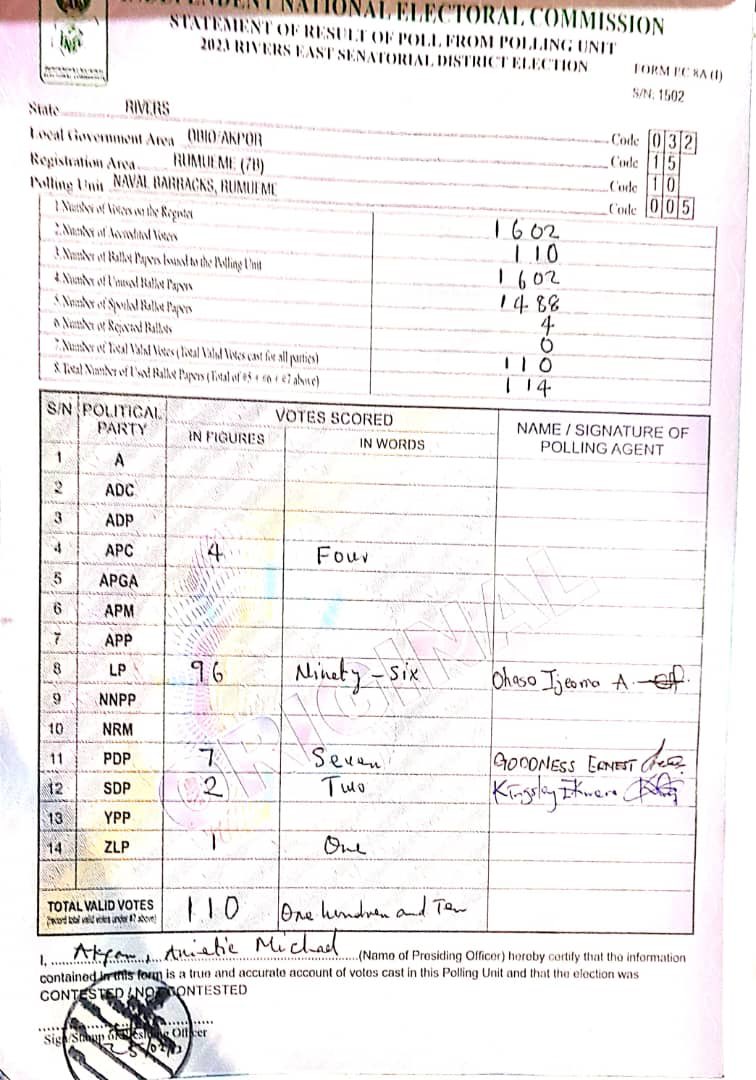 INDEPENDENT NATIONAL ELECTORAL COMMISSION
STATEMENT OF RESULT OF POLL FROM POLLING UNIT
2023 RIVERS EAST SENATORIAL DISTRICT ELECTION
FORM EC 8A (I)
S/N: 1502
State RIVERS
Local Government Area OBIO/AKPOR Code 032
Registration Area RUMUEME (7B) Code 15
Polling Unit NAVAL BARRACKS, RUMUEME Code 10
Code 005
1.Number of Voters on the Register 1602
2.Number of Accredited Voters 110
3.Number of Ballot Papers Issued to the Polling Unit 1602
4.Number of Unused Ballot Papers 1488
5.Number of Spoiled Ballot Papers 4
6.Number of Rejected Ballots 0
7.Number of Total Valid Votes (Total Valid Votes cast for all parties) 110
8.Total Number of Used Ballot Papers (Total of #5 + #6 + #7 above) 114
S/N POLITICAL PARTY VOTES SCORED NAME / SIGNATURE OF POLLING AGENT
IN FIGURES IN WORDS
1 A
2 ADC
3 ADP
4 APC 4 Four
5 APGA
6 APM
7 APP
8 LP 96 Ninety-six Ohaso Ijeoma A
9 NNPP
10 NRM
11 PDP 7 Seven GOODNESS ERNEST
12 SDP 2 Two Kingsley Ikwere
13 YPP
14 ZLP 1 One
TOTAL VALID VOTES 110 One hundren and Ten
(record total valid votes under #7 above)
ORIGINAL
I, Akpan, Anietie Michael (Name of Presiding Officer) hereby certify that the information
contained in this form is a true and accurate account of votes cast in this Polling Unit and that the election was
CONTESTED / NOT CONTESTED
Sign/Stamp of Presiding Officer